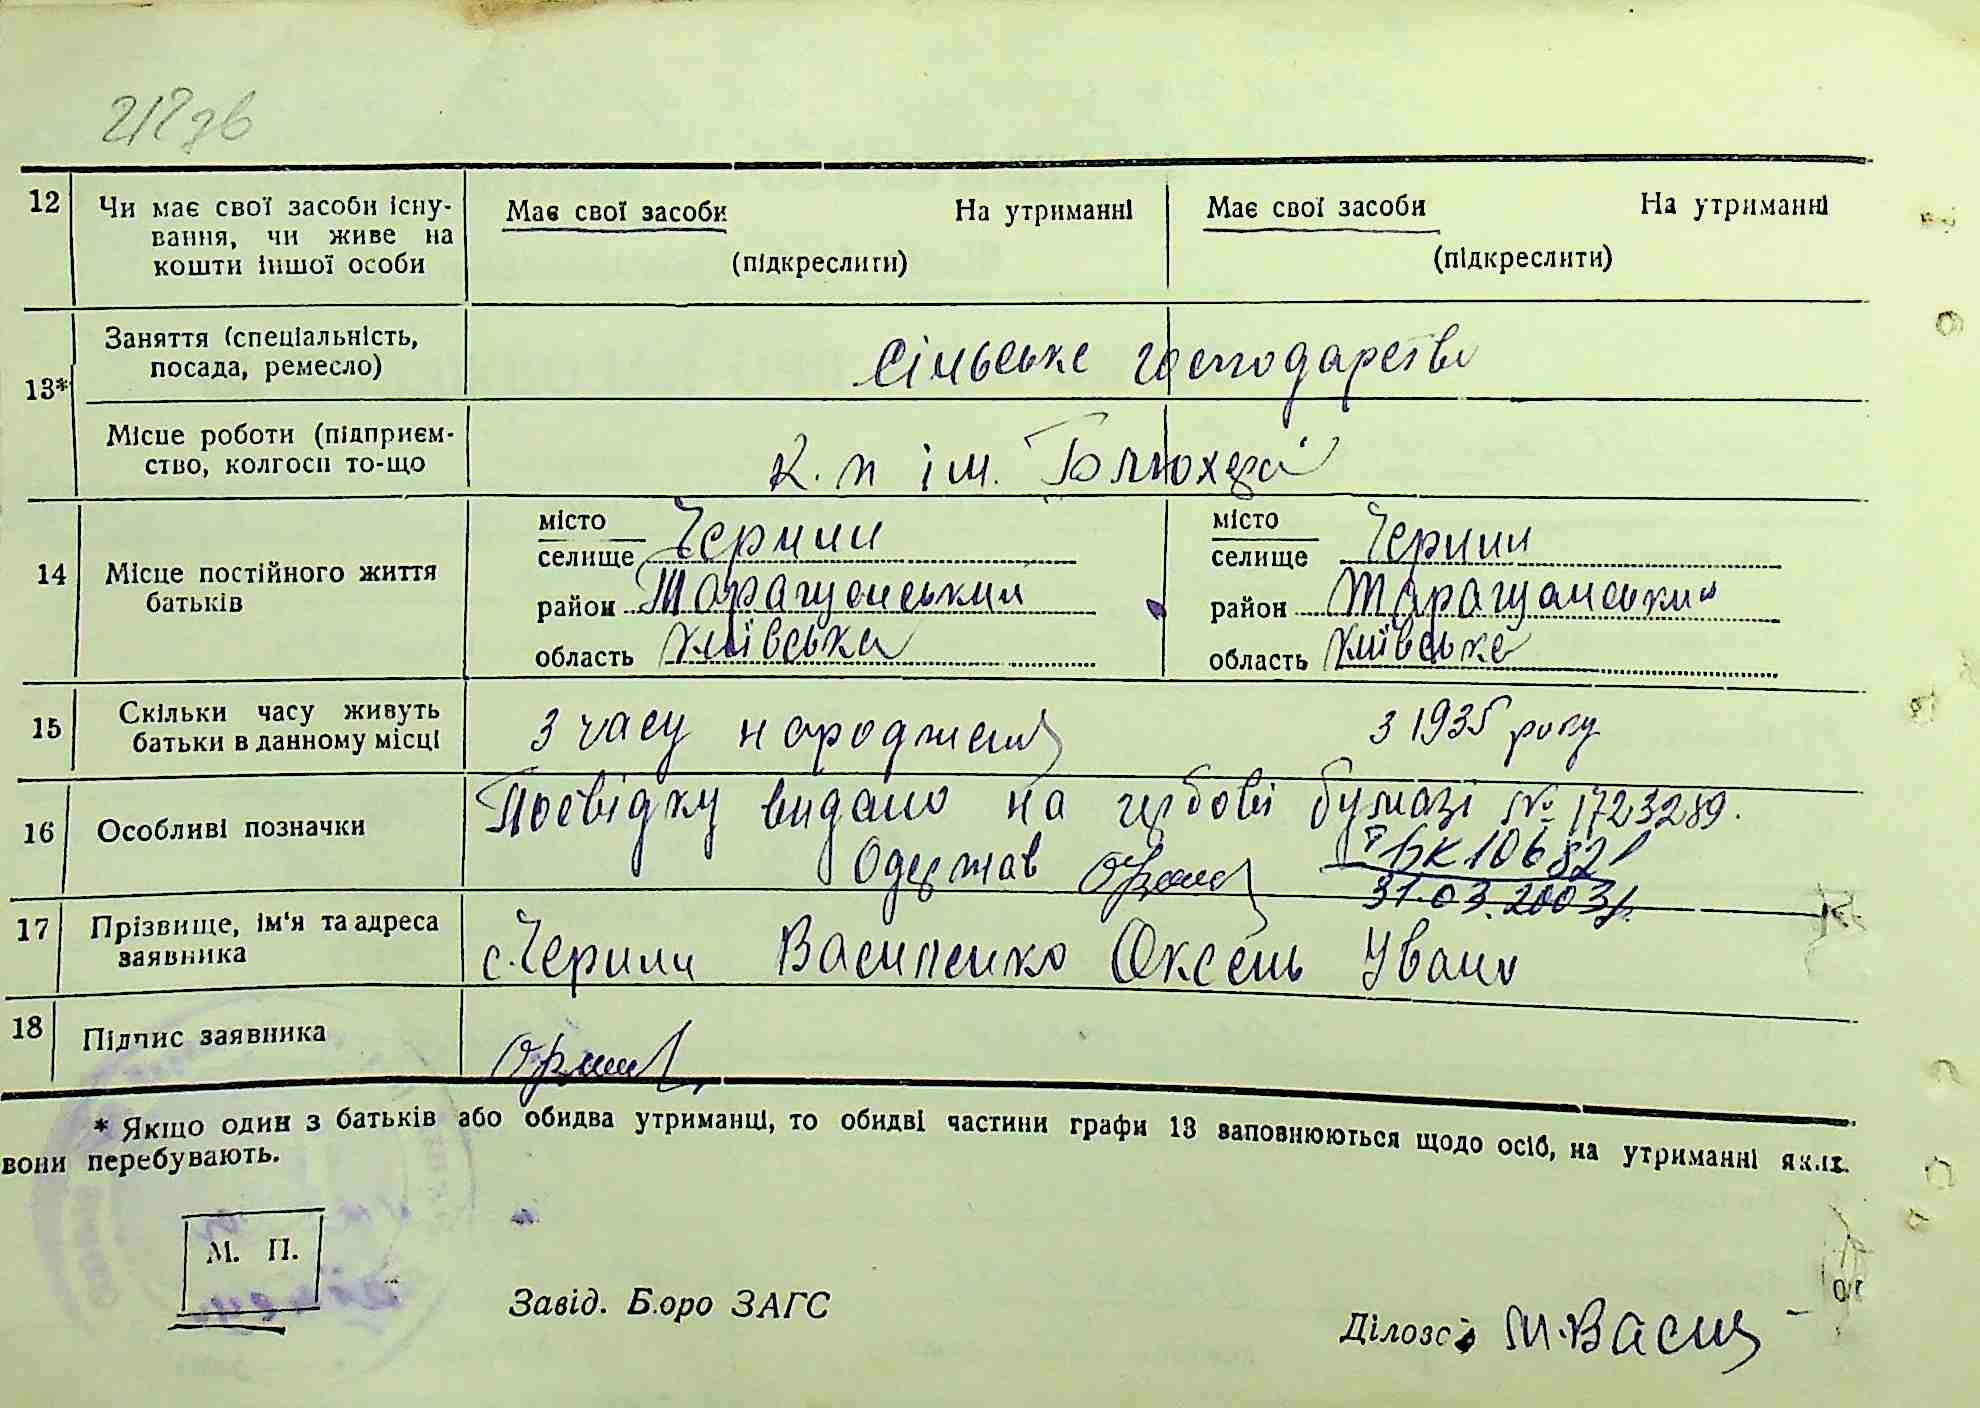 212зв
12 Чи має свої засоби існу-
вання, чи живе на
кошти іншої особи
Має свої засоби На утриманні
(підкреслити)
Має свої засоби На утриманні
(підкреслити)
13* Заняття (спеціальність,
посада, ремесло)
Сільське господарство
Місце роботи (підприєм-
ство, колгосп то-що
к. п ім. Блюхера
14 Місце постійного життя
батьків
місто
селище Черпин
район Таращанський
область Київська
місто
селище Черпин
район Таращанський
область Київська
15 Скільки часу живуть
батьки в данному місці
З часу народжения
З 1935 року
16 Особливі позначки
Посвідку видано на гербові бумазі № 1723289.
Одержав
БК 106821
31.03.2003р.
17 Прізвище, ім'я та адреса
заявника
с. Черпин Василенко Оксень Іван
18 Підпис заявника
* Якщо один з батьків або обидва утриманці, то обидві частини графи 13 заповнюються щодо осіб, на утриманні яких
вони перебувають.
М. П.
Завід. Бюро ЗАГС
Діловод М. Васил